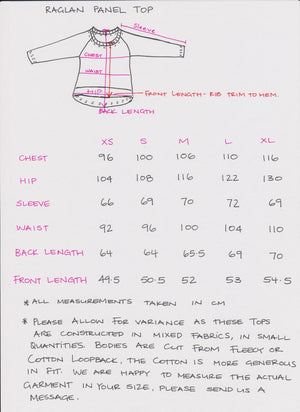 RAGLAN PANEL TOP
SLEEVE
CHEST
WAIST
HIP
FRONT LENGTH - RIB TRIM TO HEM.
BACK LENGTH
XS S M L XL
CHEST 96 100 106 110 116
HIP 104 108 116 122 130
SLEEVE 66 69 70 72 69
WAIST 92 96 100 104 110
BACK LENGTH 64 64 65.5 69 70
FRONT LENGTH 49.5 50.5 52 53 54.5
* ALL MEASUREMENTS TAKEN IN CM
* PLEASE ALLOW FOR VARIANCE AS THESE TOPS
ARE CONSTRUCTED IN MIXED FABRICS, IN SMALL
QUANTITIES. BODIES ARE CUT FROM FLEECY OR
COTTON LOOPBACK, THE COTTON IS MORE GENEROUS
IN FIT. WE ARE HAPPY TO MEASURE THE ACTUAL
GARMENT IN YOUR SIZE, PLEASE SEND US A
MESSAGE.